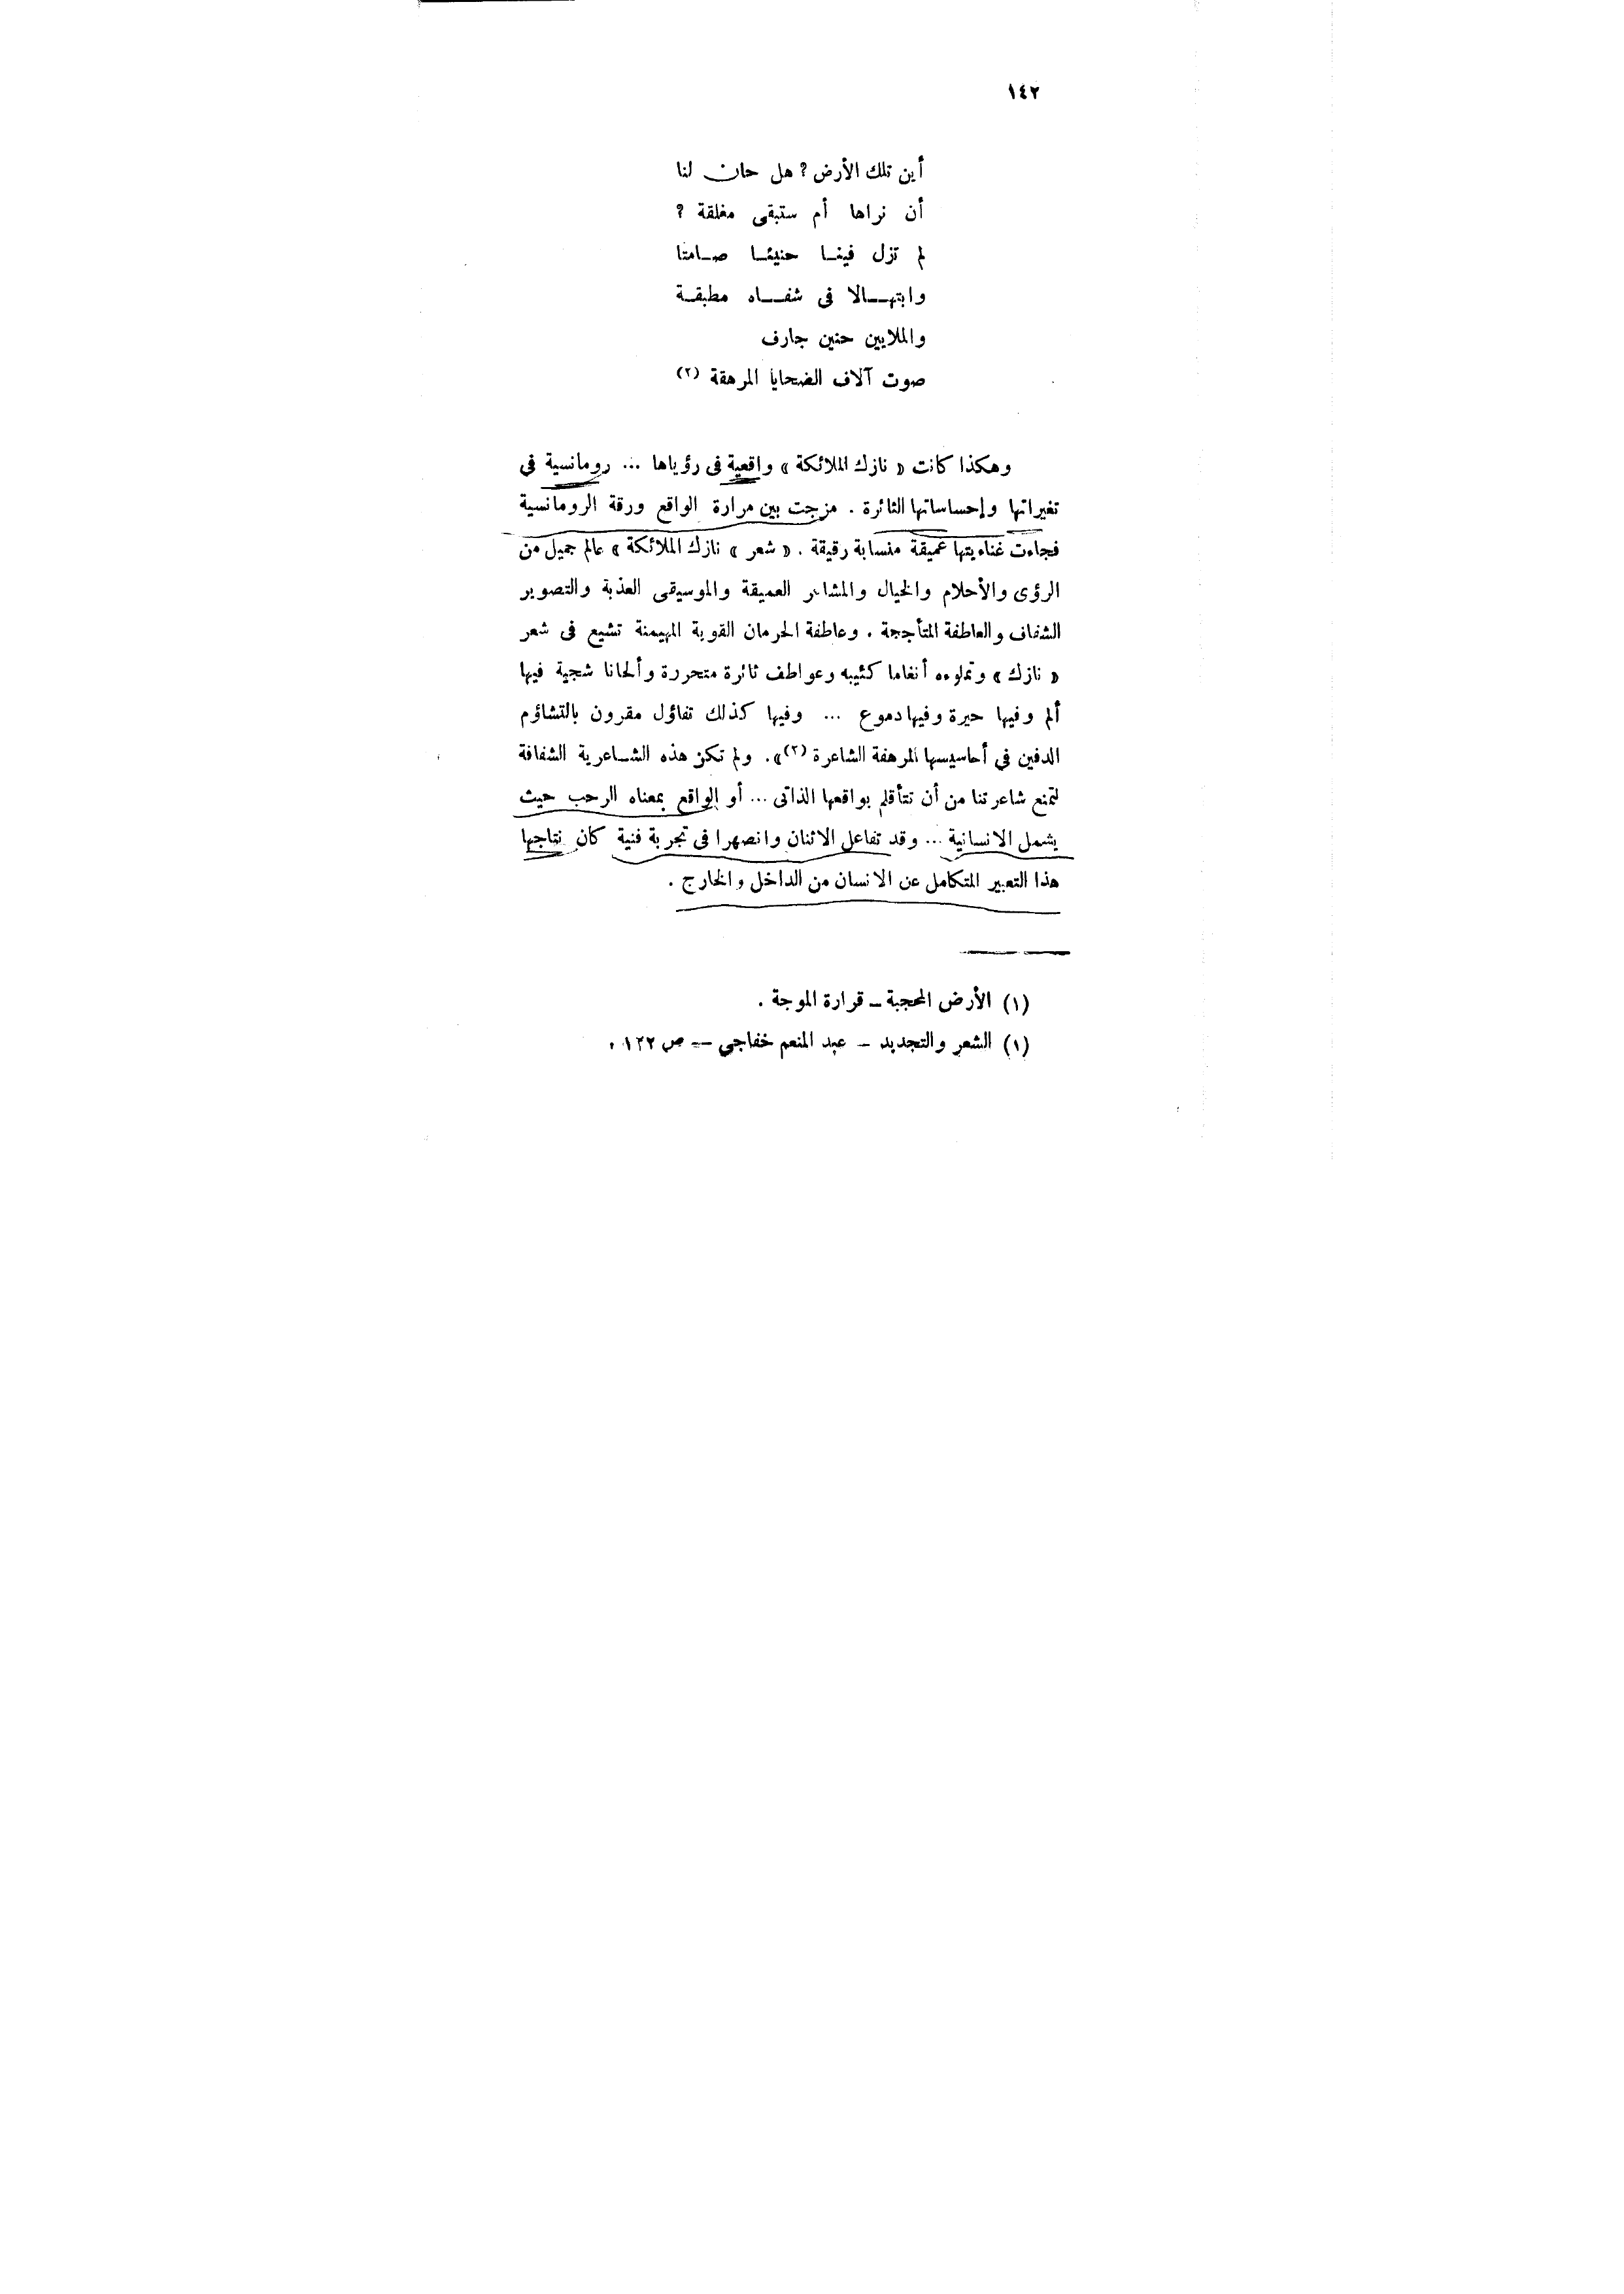 ١٤٢
أين تلك الأرض ؟ هل حان لنا
أن نراها أم ستبقى مغلقة ؟
لم تزل فينا حنينا صامتا
وابتهالا فى شفاه مطبقة
والملايين حنين جارف
صوت آلاف الضحايا المرهقة (٢)
وهكذا كانت « نازك الملائكة » واقعية فى رؤياها ... رومانسية في
تغيراتها وإحساساتها الثائرة . مزجت بين مرارة الواقع ورقة الرومانسية
فجاءت غناءيتها عميقة منسابة رقيقة . « شعر » نازك الملائكة » عالم جميل من
الرؤى والأحلام والخيال والمشاعر العميقة والموسيقى العذبة والتصوير
الشفاف والعاطفة المتأججة . وعاطفة الحرمان القوية المهيمنة تشيع فى شعر
« نازك » وتملوءه أنغاما كئيبه وعواطف ثائرة متحررة وألحانا شجية فيها
ألم وفيها حيرة وفيها دموع ... وفيها كذلك تفاؤل مقرون بالتشاؤم
الدفين في أحاسيسها المرهفة الشاعرة (٢)» . ولم تكن هذه الشاعرية الشفافة
لتمنع شاعرتنا من أن تتأقلم بواقعها الذاتى ... أو الواقع بمعناه الرحب حيث
يشمل الانسانية ... وقد تفاعل الاثنان وانصهرا فى تجربة فنية كان نتاجها
هذا التعبير المتكامل عن الانسان من الداخل والخارج .
(١) الأرض المحجبة – قرارة الموجة .
(١) الشعر والتجديد – عبد المنعم خفاجي – ص ١٢٢ .